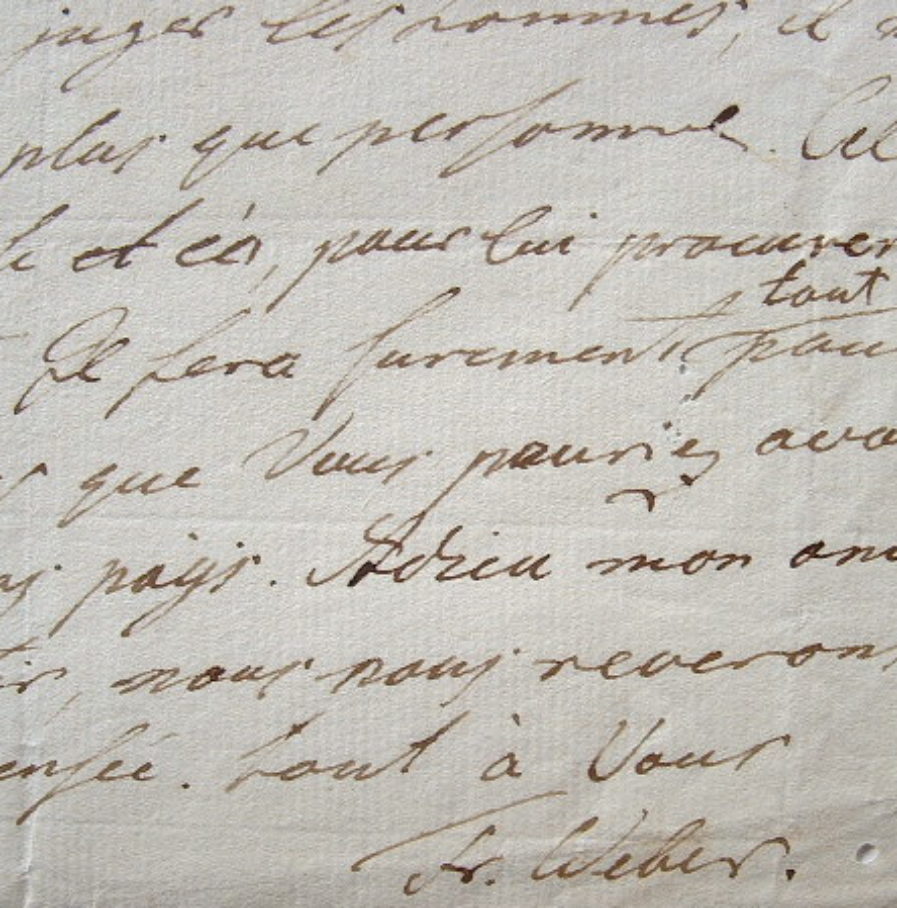 juger les hommes, il
plus que personne. Cel
et là, pour lui procurer
tout
Il fera surement pour
que Vous pouriez avo
pays. Adieu mon ami
nous nous reverons
ensée. tout à Vous
Fr. Weber.